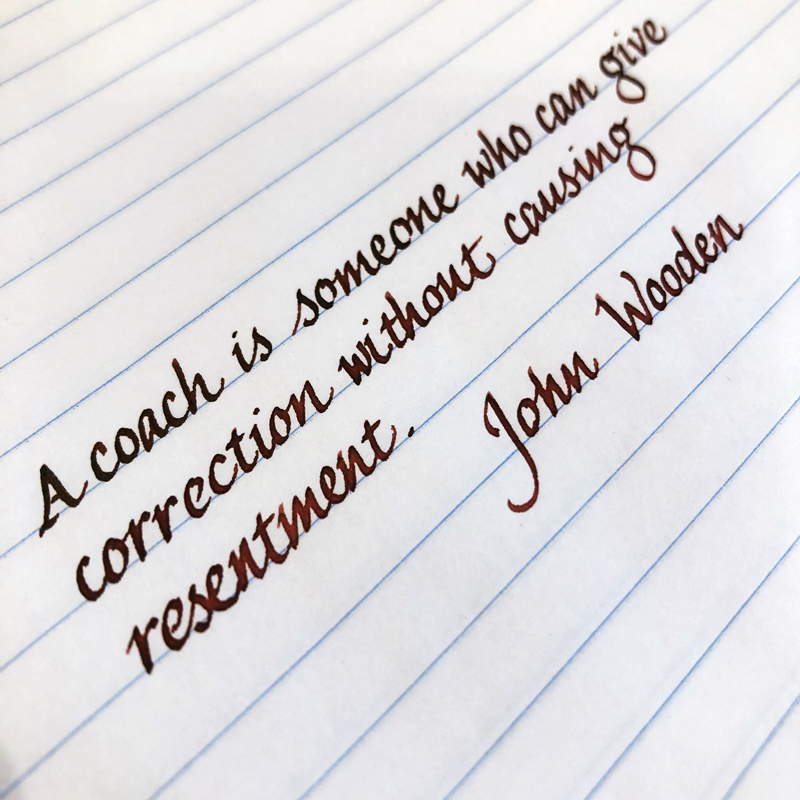 A coach is someone who can give
correction without causing
resentment. John Wooden